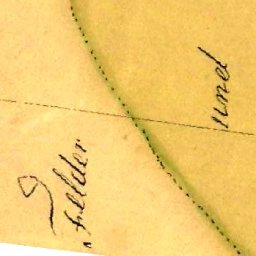 Felder
und